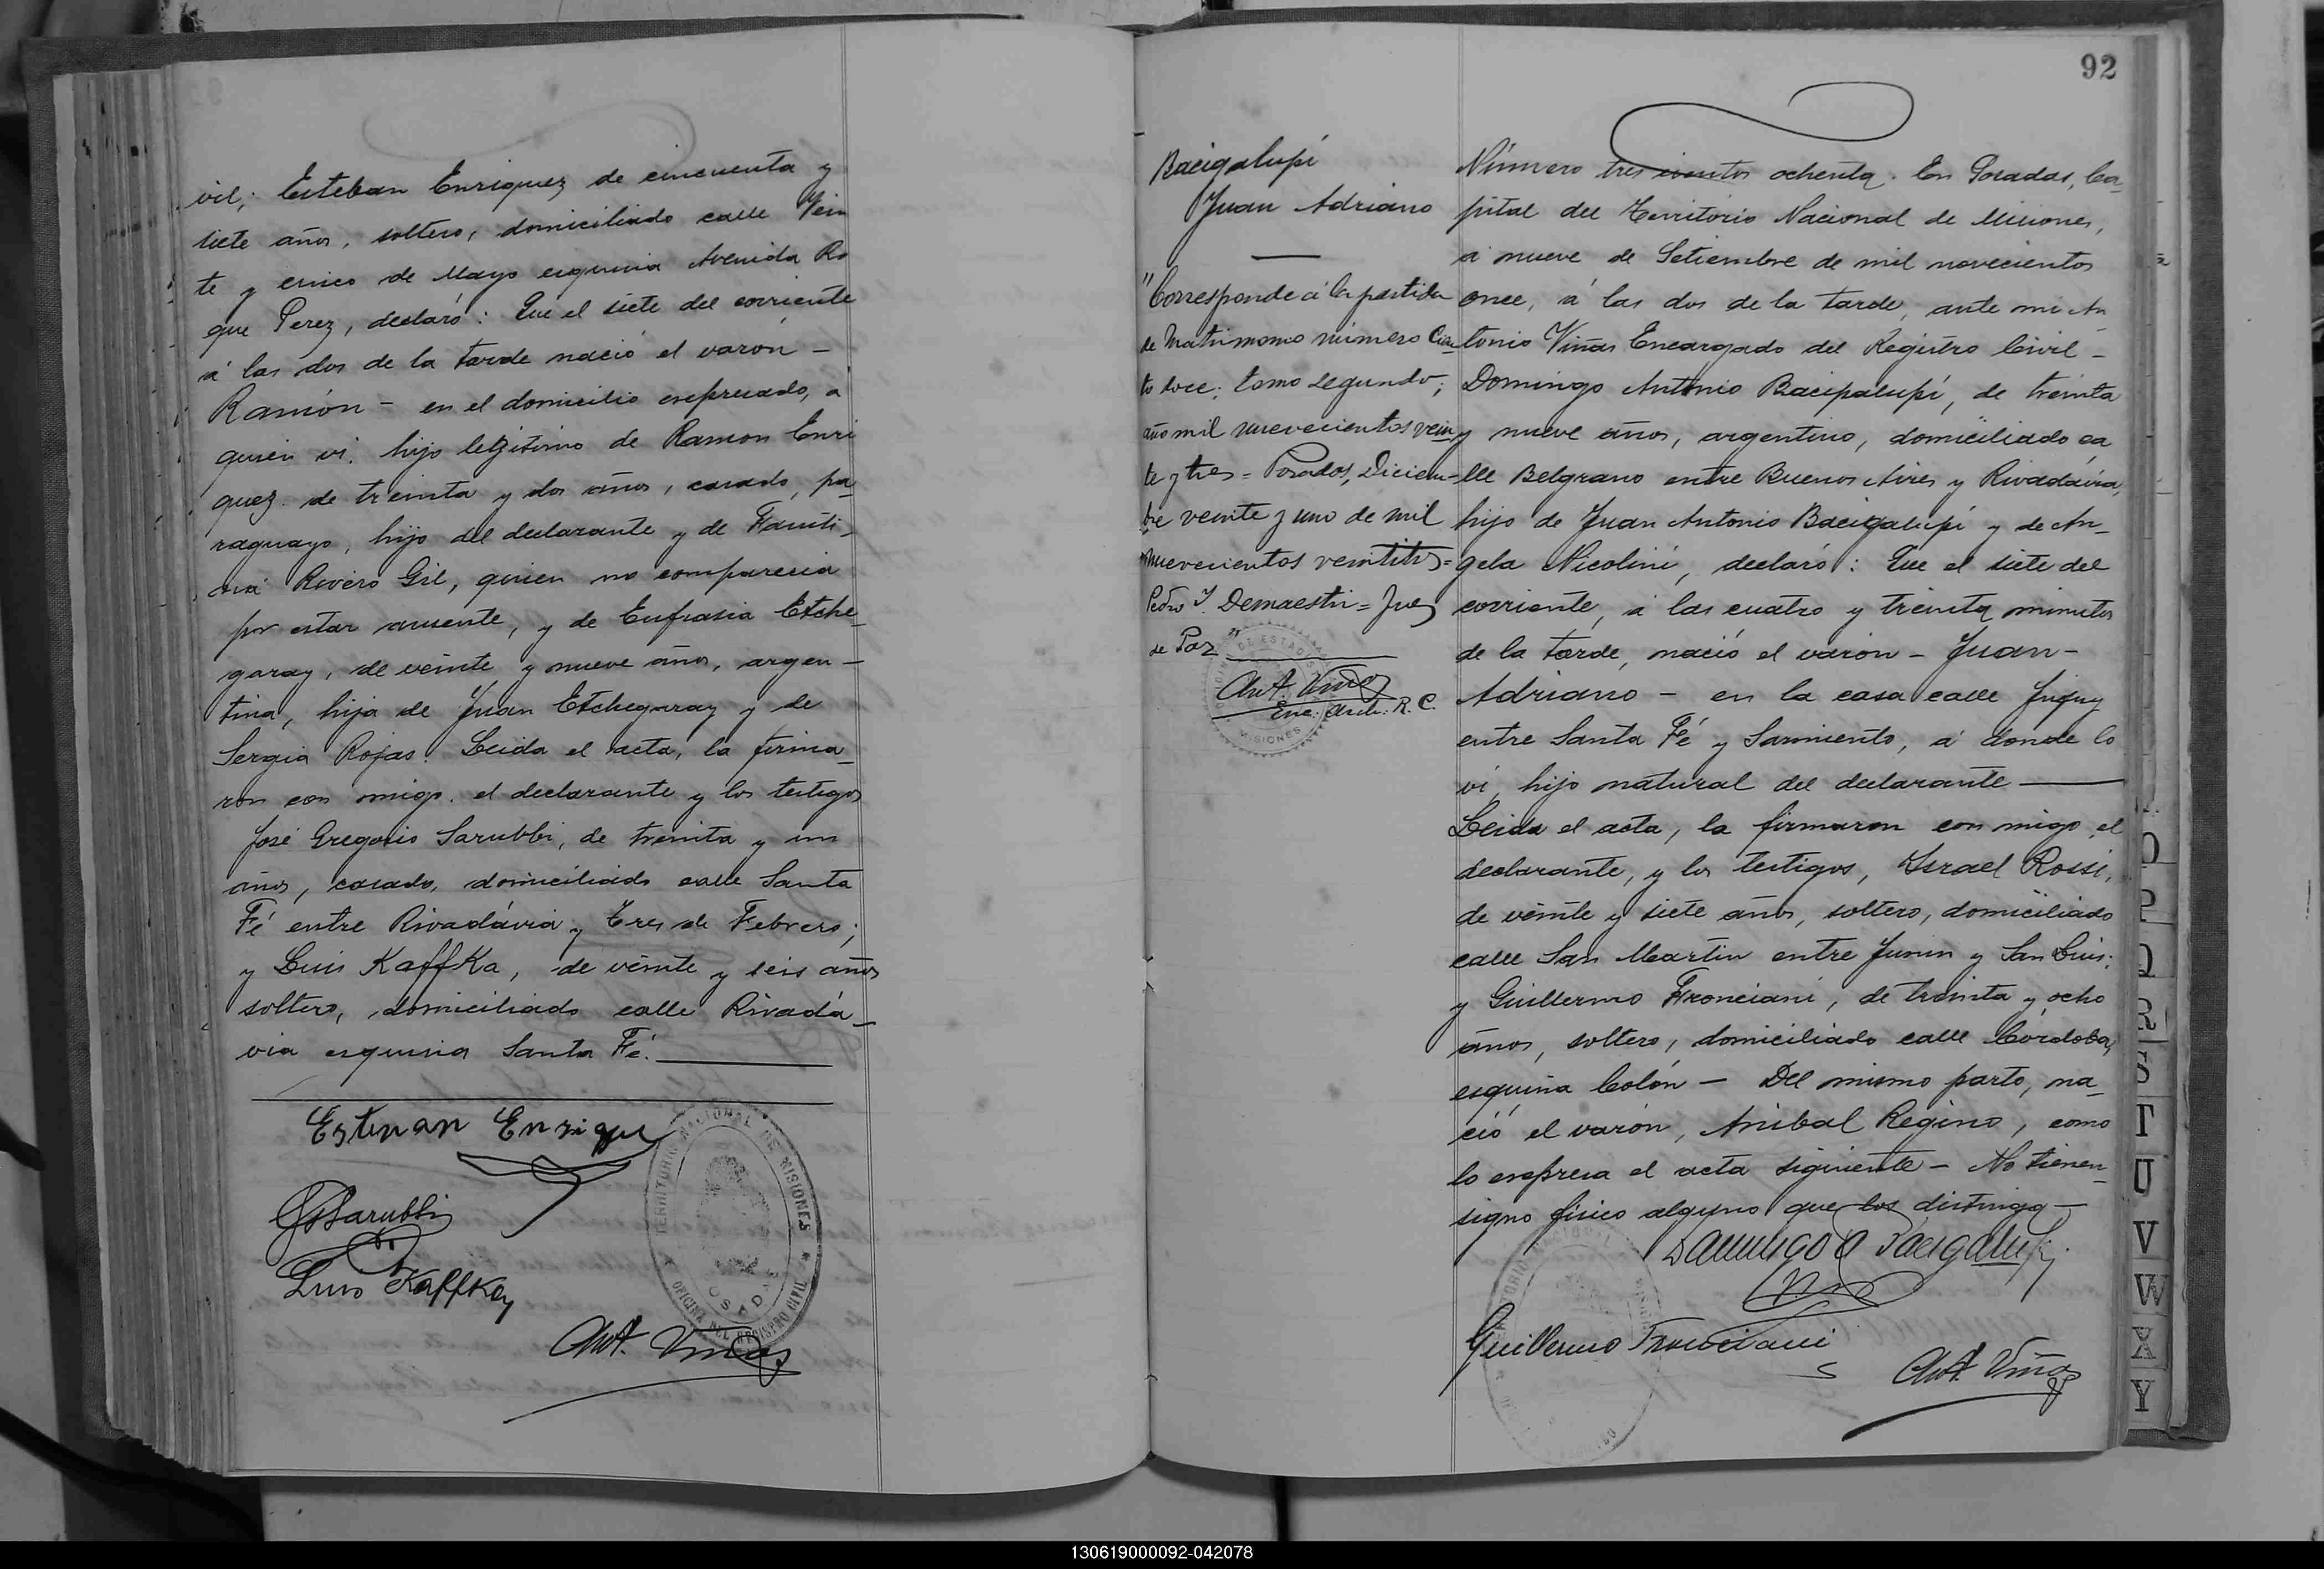 vil; Esteban Enriquez de cincuenta y
siete años, soltero, domiciliado calle Vein
te y cinco de Mayo esquina Avenida Ro
que Perez, declaró: Que el siete del corriente
á las dos de la tarde nació el varón –
Ramón – en el domicilio expresado, a
quien vi. hijo legitimo de Ramon Enri
quez de treinta y dos años, casado, pa_
raguayo, hijo del declarante y de Fausti_
na Rivero Gil, quien no comparecia
por estar ausente, y de Eufrasia Etche_
garay, de veinte y nueve años, argen –
tina, hija de Juan Etchegaray y de
Sergia Rojas. Leida el acta, la firma_
ron con migo. el declarante y los testigos
José Gregorio Sarubbi, de treinta y un
años, casado, domiciliado calle Santa
Fé entre Rivadávia y Tres de Febrero;
y Luis Kaffka, de veinte y seis años
soltero, domiciliado calle Rivadá_
via esquina Santa Fé.
Esteban Enrique
JGSarubbi
Luis Kaffka
TERRITORIO NACIONAL DE MISIONES
POSADAS
OFICINA DEL REGISTRO CIVIL
Ant. Viñas
92
Bacigalupi
Juan Adriano
"Corresponde á la partida
de Matrimonio número Cien_
to doce; tomo segundo;
año mil nuevecientos vein
te y tres = Posadas, Diciem=
bre veinte y uno de mil
nuevecientos veintitres=
Pedro I. Demaestri = Juez
de Paz"
Ant. Viñas
Enc. Arch. R. C.
MISIONES
Número tres cientos ochenta. En Posadas, Ca_
pital del Territorio Nacional de Misiones,
a nueve de Setiembre de mil novecientos
once, á las dos de la tarde, ante mi An_
tonio Viñas Encargado del Registro Civil –
Domingo Antonio Bacigalupi, de treinta
y nueve años, argentino, domiciliado ca
lle Belgrano entre Buenos Aires y Rivadávia,
hijo de Juan Antonio Bacigalupi y de An_
gela Nicolini, declaró: Que el siete del
corriente, á las cuatro y treinta minutos
de la tarde, nació el varón – Juan –
Adriano – en la casa calle Jujuy
entre Santa Fé y Sarmiento, á donde lo
vi, hijo natural del declarante
Leida el acta, la firmaron con migo, el
declarante, y los testigos, Israel Rossi,
de veinte y siete años, soltero, domiciliado
calle San Martin entre Junin y San Luis;
y Guillermo Fronciani, de treinta y ocho
años, soltero, domiciliado calle Córdoba,
esquina Colón – Del mismo parto, na_
ció el varón, Anibal Regino, como
lo expresa el acta siguiente – No tienen_
signo fisico alguno que los distinga –
Domingo A Bacigalupi
Guillermo Fronciani
Ant. Viñas
O
P
Q
R
S
T
U
V
W
X
Y
130619000092-042078